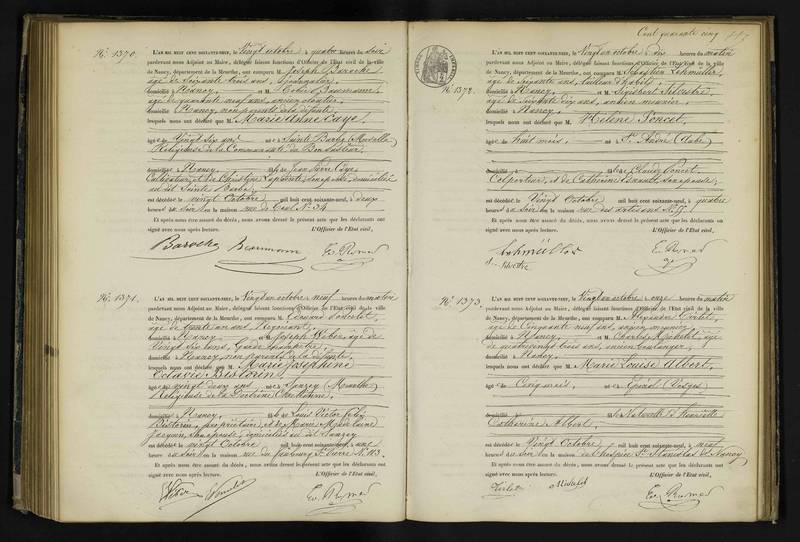 Cent quarante cinq
N.° 1370.
L'AN MIL HUIT CENT SOIXANTE-NEUF, le Vingt octobre à quatre heures du soir
pardevant nous Adjoint au Maire, délégué faisant fonctions d'Officier de l'Etat civil de la ville
de Nancy, département de la Meurthe, ont comparu M. Joseph Baroche
âgé de Soixante trois ans,
domicilié à Nancy, et M. Beaumann
âgé de quarante neuf ans, ancien
domicilié à Nancy, non parents de la défunte
lesquels nous ont déclaré que M. Marie Anne Caye
âgée de Vingt six ans née à Sainte Barbe (Moselle)
Religieuse de la Communauté du Bon Sauveur
domiciliée à Nancy, fille de Jean Pierre Caye
Cultivateur, et de son épouse domiciliés
au dit Sainte Barbe,
est décédée le vingt Octobre, mil huit cent soixante-neuf, à deux
heures du soir en la maison rue N° 34
Et après nous être assuré du décès, nous avons dressé le présent acte que les déclarants ont
signé avec nous après lecture. L'Officier de l'Etat civil,
Baroche Beaumann
N.° 1371.
L'AN MIL HUIT CENT SOIXANTE-NEUF, le Vingt un octobre neuf heures du matin
pardevant nous Adjoint au Maire, délégué faisant fonctions d'Officier de l'Etat civil de la ville
de Nancy, département de la Meurthe, ont comparu M. Edouard
âgé de trente un ans, Négociant,
domicilié à Nancy et M. Joseph Weber, âgé de
Vingt six ans, Garde
domicilié à Nancy, non parents de la défunte,
lesquels nous ont déclaré que M. Marie Joséphine
Octavie Bistorin
âgée de vingt deux ans née à Sanzey (Meurthe)
Religieuse de la Doctrine Chrétienne,
domiciliée à Nancy, fille de Louis Victor
Bistorin, propriétaire, et de Marie Madelaine
Jacquin, son épouse, domiciliés au dit Sanzey
est décédée le vingt Octobre, mil huit cent soixante-neuf, à une
heure du soir en la maison rue du faubourg St. Pierre N. 113.
Et après nous être assuré du décès, nous avons dressé le présent acte que les déclarants ont
signé avec nous après lecture. L'Officier de l'Etat civil,
Weber
N.° 1372.
L'AN MIL HUIT CENT SOIXANTE-NEUF, le Vingt un octobre, dix heures du matin
pardevant nous Adjoint au Maire, délégué faisant fonctions d'Officier de l'Etat civil de la ville
de Nancy, département de la Meurthe, ont comparu M. Sébastien Lehmüller,
âgé de Soixante ans, tailleur d'habits,
domicilié à Nancy, et M. Sigisbert Silvestre,
âgé de Soixante dix ans, ancien menuisier,
domicilié à Nancy,
lesquels nous ont déclaré que M. Hélène Poncet
âgée de huit mois, née à St. André (Aube)
fille de Claude Poncet
Colporteur, et de Catherine son épouse,
est décédée le Vingt Octobre, mil huit cent soixante-neuf, à quatre
heures du soir en la maison rue des artisans N.
Et après nous être assuré du décès, nous avons dressé le présent acte que les déclarants ont
signé avec nous après lecture. L'Officier de l'Etat civil,
Lehmüller
Silvestre
N.° 1373.
L'AN MIL HUIT CENT SOIXANTE-NEUF, le Vingt un octobre onze heures du matin
pardevant nous Adjoint au Maire, délégué faisant fonctions d'Officier de l'Etat civil de la ville
de Nancy, département de la Meurthe, ont comparu M. Alexandre
âgé de Cinquante neuf ans, ancien
domicilié à Nancy, et M. Charles Michelet, âgé
de quatre vingt trois ans, ancien boulanger,
domicilié à Nancy,
lesquels nous ont déclaré que M. Marie Louise Albert,
âgée de Cinq mois, née à Epinal (Vosges)
fille Naturelle d'Henriette
Catherine Albert,
est décédée le Vingt Octobre, mil huit cent soixante-neuf, à neuf
heures du soir en la maison de l'hospice St. Stanislas à Nancy
Et après nous être assuré du décès, nous avons dressé le présent acte que les déclarants ont
signé avec nous après lecture. L'Officier de l'Etat civil,
Michelet